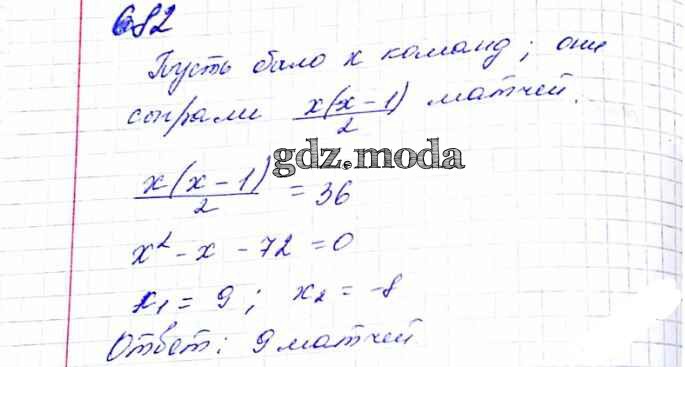 682
Пусть было x команд; они
сыграли x(x-1)/2 матчей.
gdz.moda
x(x-1)/2 = 36
x² - x - 72 = 0
x₁ = 9; x₂ = -8
Ответ: 9 матчей